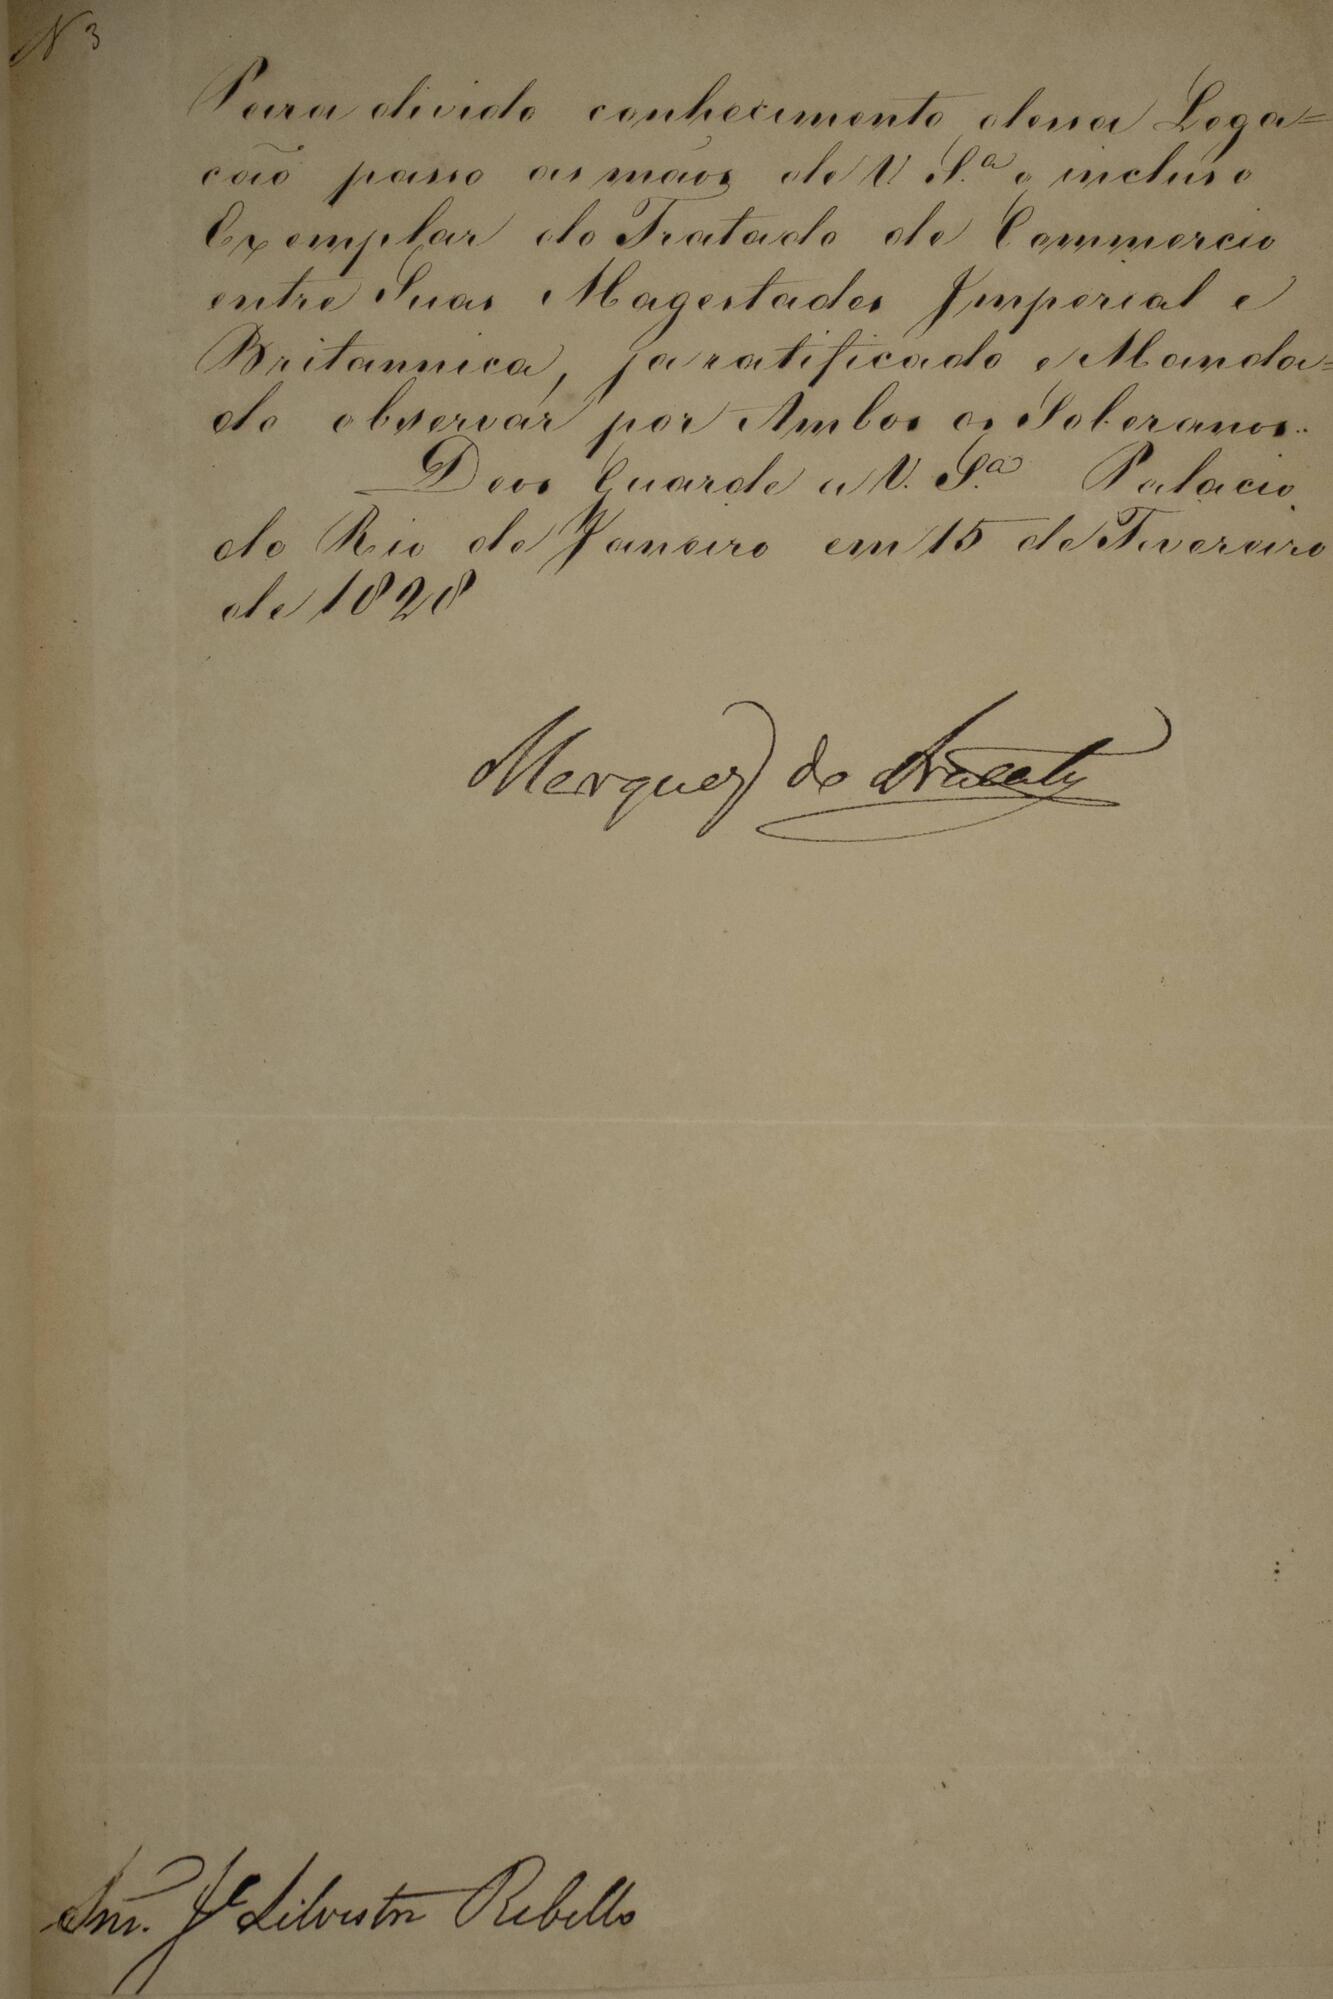 N 3
Para divido conhecimento dessa Lega=
caõ passo as maõs de V. S.ª o incluso
Exemplar do Tratado de Commercio
entre Suas Magestades Imperial e
Britannica, ja ratificado e Manda=
do observar por Ambos os Soberanos..
Deos Guarde a V. S.ª Palacio
do Rio de Janeiro em 15 de Fevereiro
de 1828
Marquez de Aracaty
Snr. Jê Silvestre Rebello